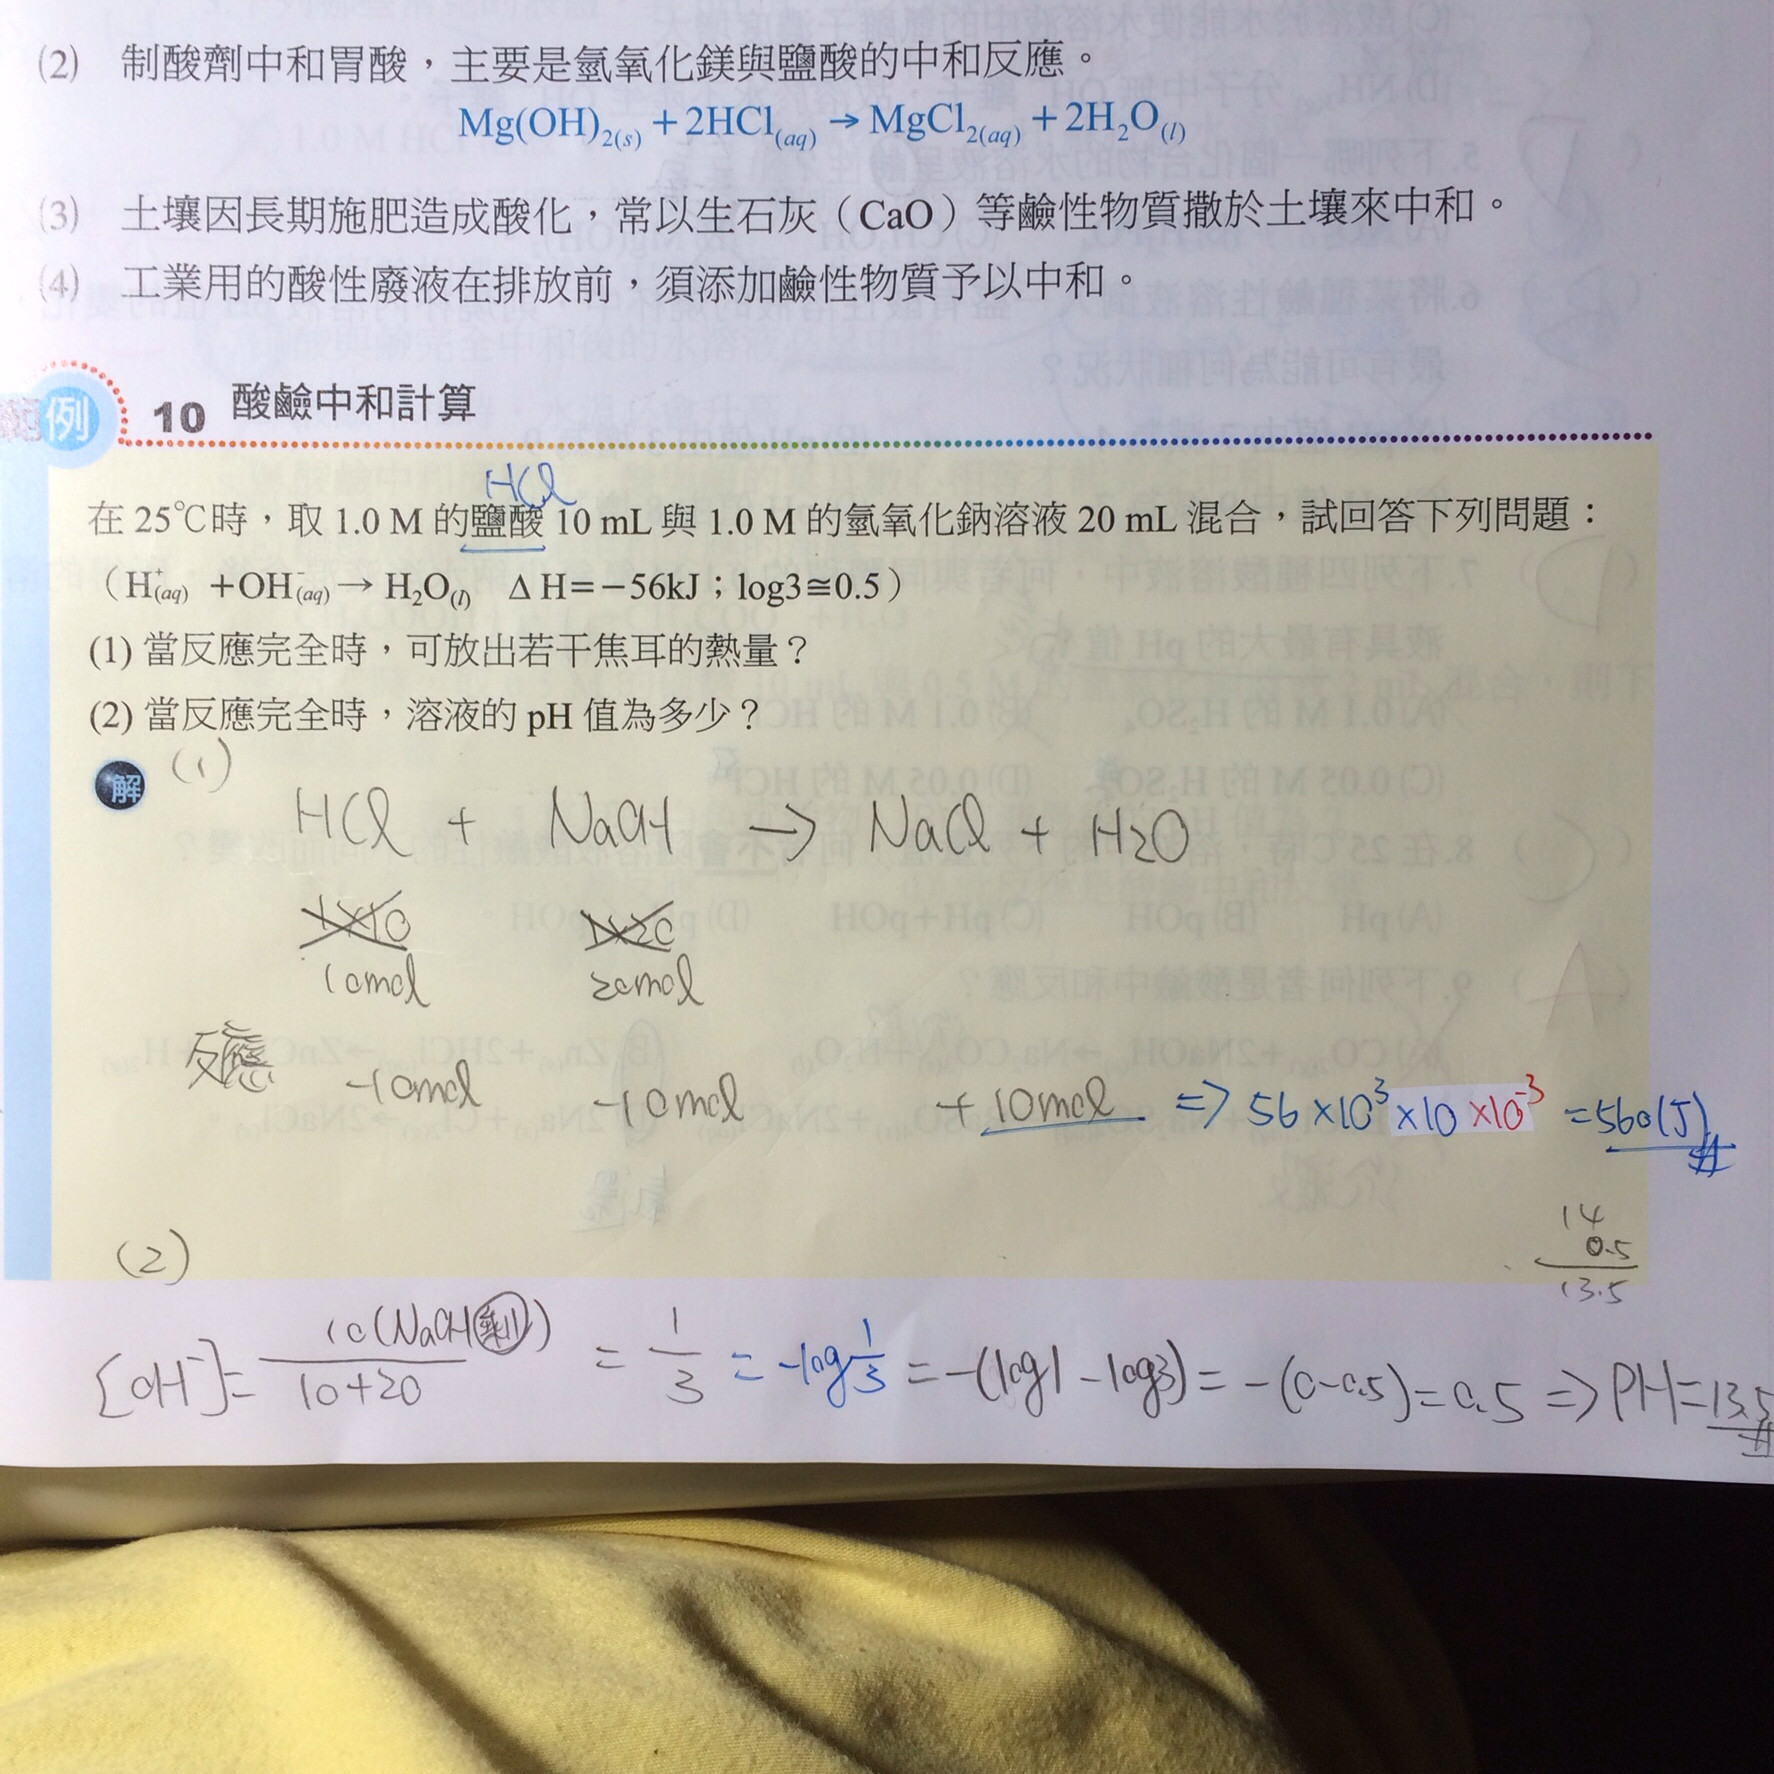 (2) 制酸劑中和胃酸，主要是氫氧化鎂與鹽酸的中和反應。
Mg(OH)₂(s) + 2HCl(aq) → MgCl₂(aq) + 2H₂O(l)
(3) 土壤因長期施肥造成酸化，常以生石灰（CaO）等鹼性物質撒於土壤來中和。
(4) 工業用的酸性廢液在排放前，須添加鹼性物質予以中和。
範例 10 酸鹼中和計算
HCl
在 25℃時，取 1.0 M 的鹽酸 10 mL 與 1.0 M 的氫氧化鈉溶液 20 mL 混合，試回答下列問題：
（H⁺(aq) + OH⁻(aq) → H₂O(l) ΔH=−56kJ；log3≅0.5）
(1) 當反應完全時，可放出若干焦耳的熱量？
(2) 當反應完全時，溶液的 pH 值為多少？
解 (1)
HCl + NaOH → NaCl + H₂O
1×10 1×20
10mol 20mol
反應 -10mol -10mol +10mol ⇒ 56×10³×10×10⁻³ =560(J)#
14
0.5
13.5
(2)
[OH⁻]= 10(NaOH剩)/10+20 = 1/3 = -log1/3 = -(log1-log3) = -(0-0.5)=0.5 ⇒ PH=13.5#